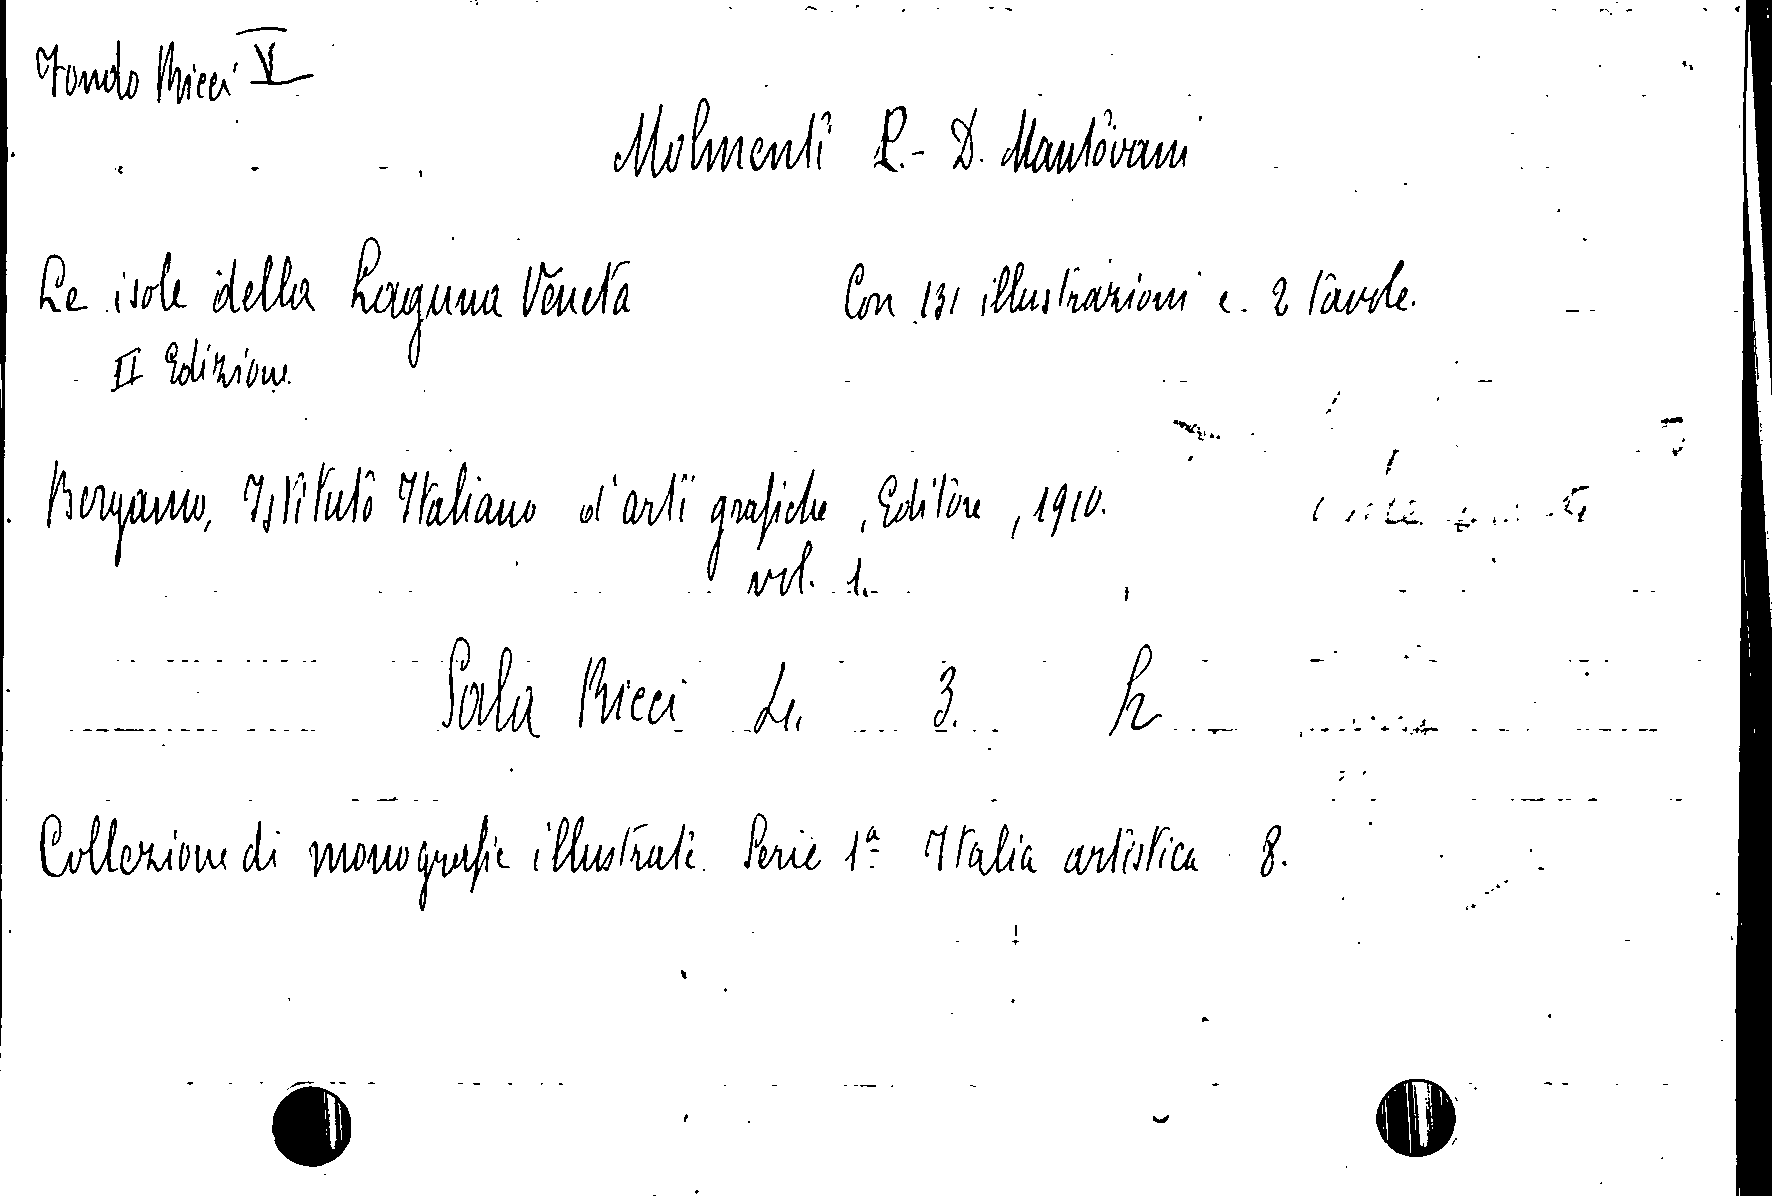 Fondo Ricci V
Molmenti P. - D. Mantovani
Le isole della Laguna Veneta Con 131 illustrazioni e 2 tavole.
II Edizione
Bergamo, Istituto Italiano d'arti grafiche, Editore, 1910.
vol. 1.
Sala Ricci L. 3. h
Collezione di monografie illustrate. Serie 1ª Italia artistica 8.